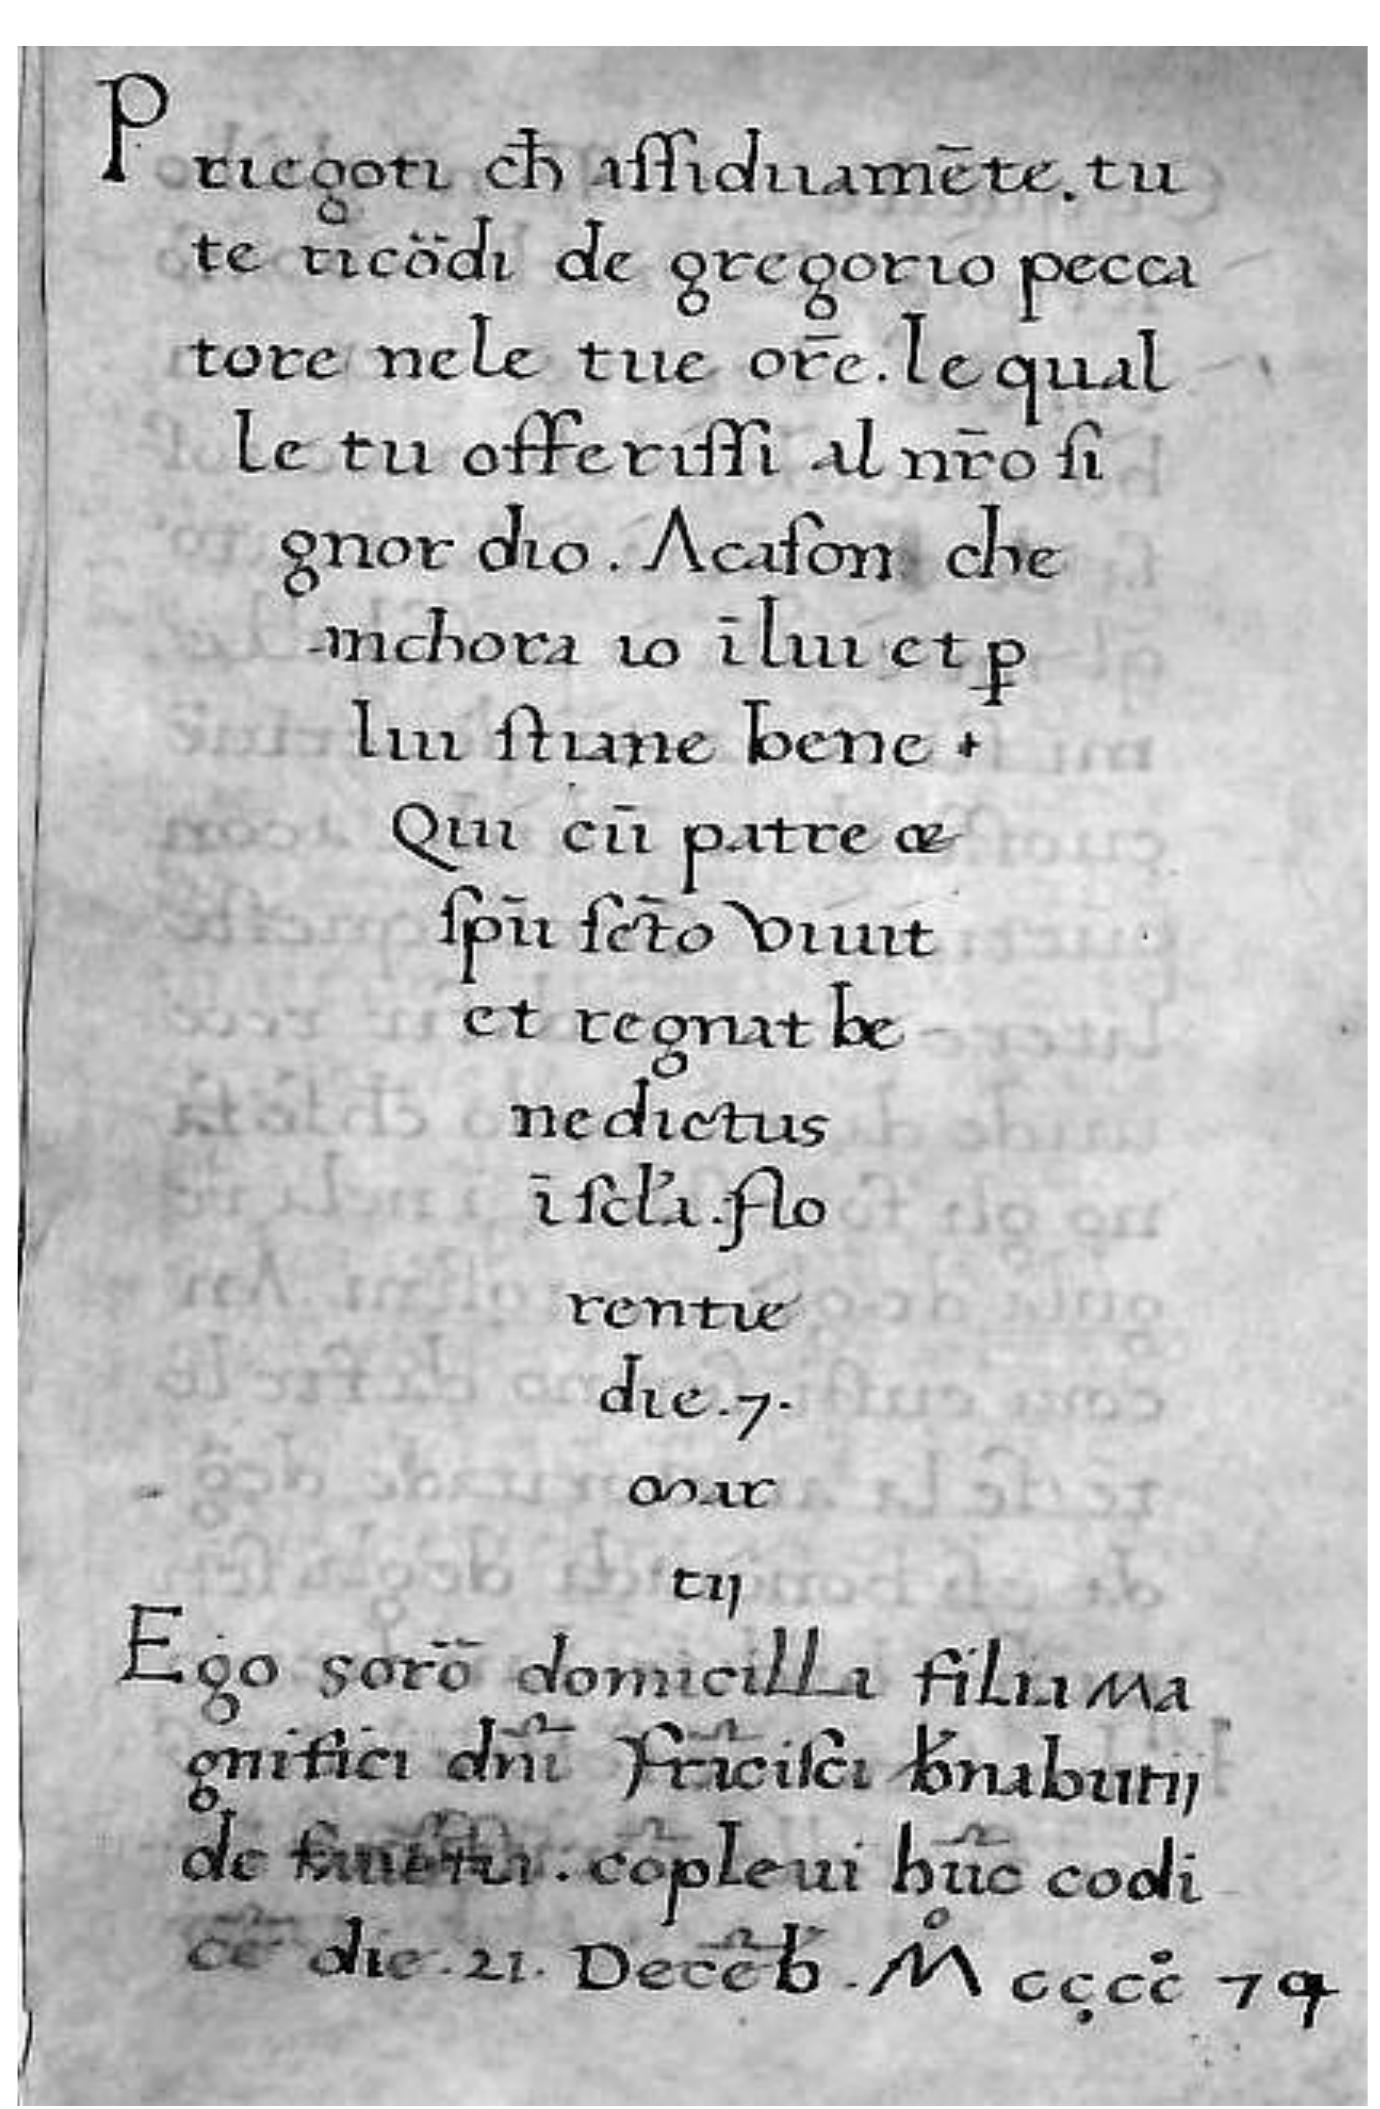 Priegoti ch̄ assiduamēte. tu
te ricōdi de gregorio pecca
tore nele tue or̄e. le qual
le tu offerissi al nr̄o si
gnor dio. Acason che
anchora io ī lui et ꝑ
lui stiane bene +
Qui cū patre &
spū sc̄to viuit
et regnat be
nedictus
ī scl̓a. flo
rentie
die .7.
mar
tij
Ego sorō domicilla filia Ma
gnifici dn̄i frācisci bn̄abutij
de . cōpleui hūc codi
cē die .21. Decēb̄ . M̊ cccc̊ 79